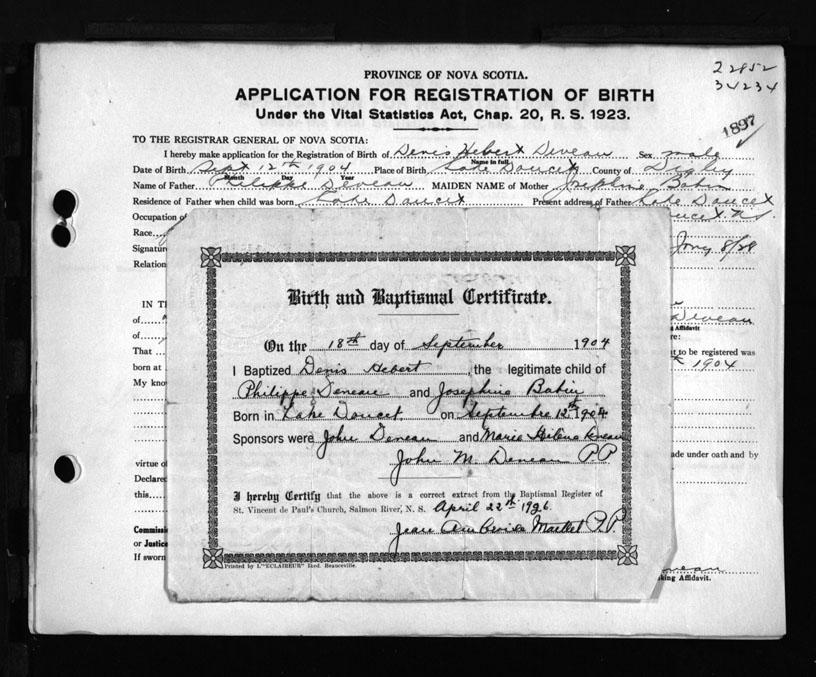 22852
34234
PROVINCE OF NOVA SCOTIA.
APPLICATION FOR REGISTRATION OF BIRTH
Under the Vital Statistics Act, Chap. 20, R. S. 1923.
1897
TO THE REGISTRAR GENERAL OF NOVA SCOTIA:
I hereby make application for the Registration of Birth of Denis Hebert Deveau Sex male
Name in full
Date of Birth Sept 12th 1904 Place of Birth Lake Doucet County of Digby
Month Day Year
Name of Father Philippe Deveau MAIDEN NAME of Mother Josephine Babin
Residence of Father when child was born Lake Doucet Present address of Father Lake Doucet
Occupation of
Race
Signature
Relation
IN TH
of
of
That
born at
My know
Deveau
Affidavit
re:
t to be registered was
1904
virtue of
ade under oath and by
Declared
this
Commiss
or Justice
If sworn
king Affidavit.
Birth and Baptismal Certificate.
On the 18th day of September 1904
I Baptized Denis Hebert, the legitimate child of
Philippe Deveau and Josephine Babin
Born in Lake Doucet on Septembre 12th 1904
Sponsors were John Deveau and Marie Hélène Deveau
John M. Deveau P.P
I hereby Certify that the above is a correct extract from the Baptismal Register of
St. Vincent de Paul's Church, Salmon River, N. S. April 22th 1926.
Jean P.P.
Printed by L'"ECLAIREUR" Ltd. Beauceville.